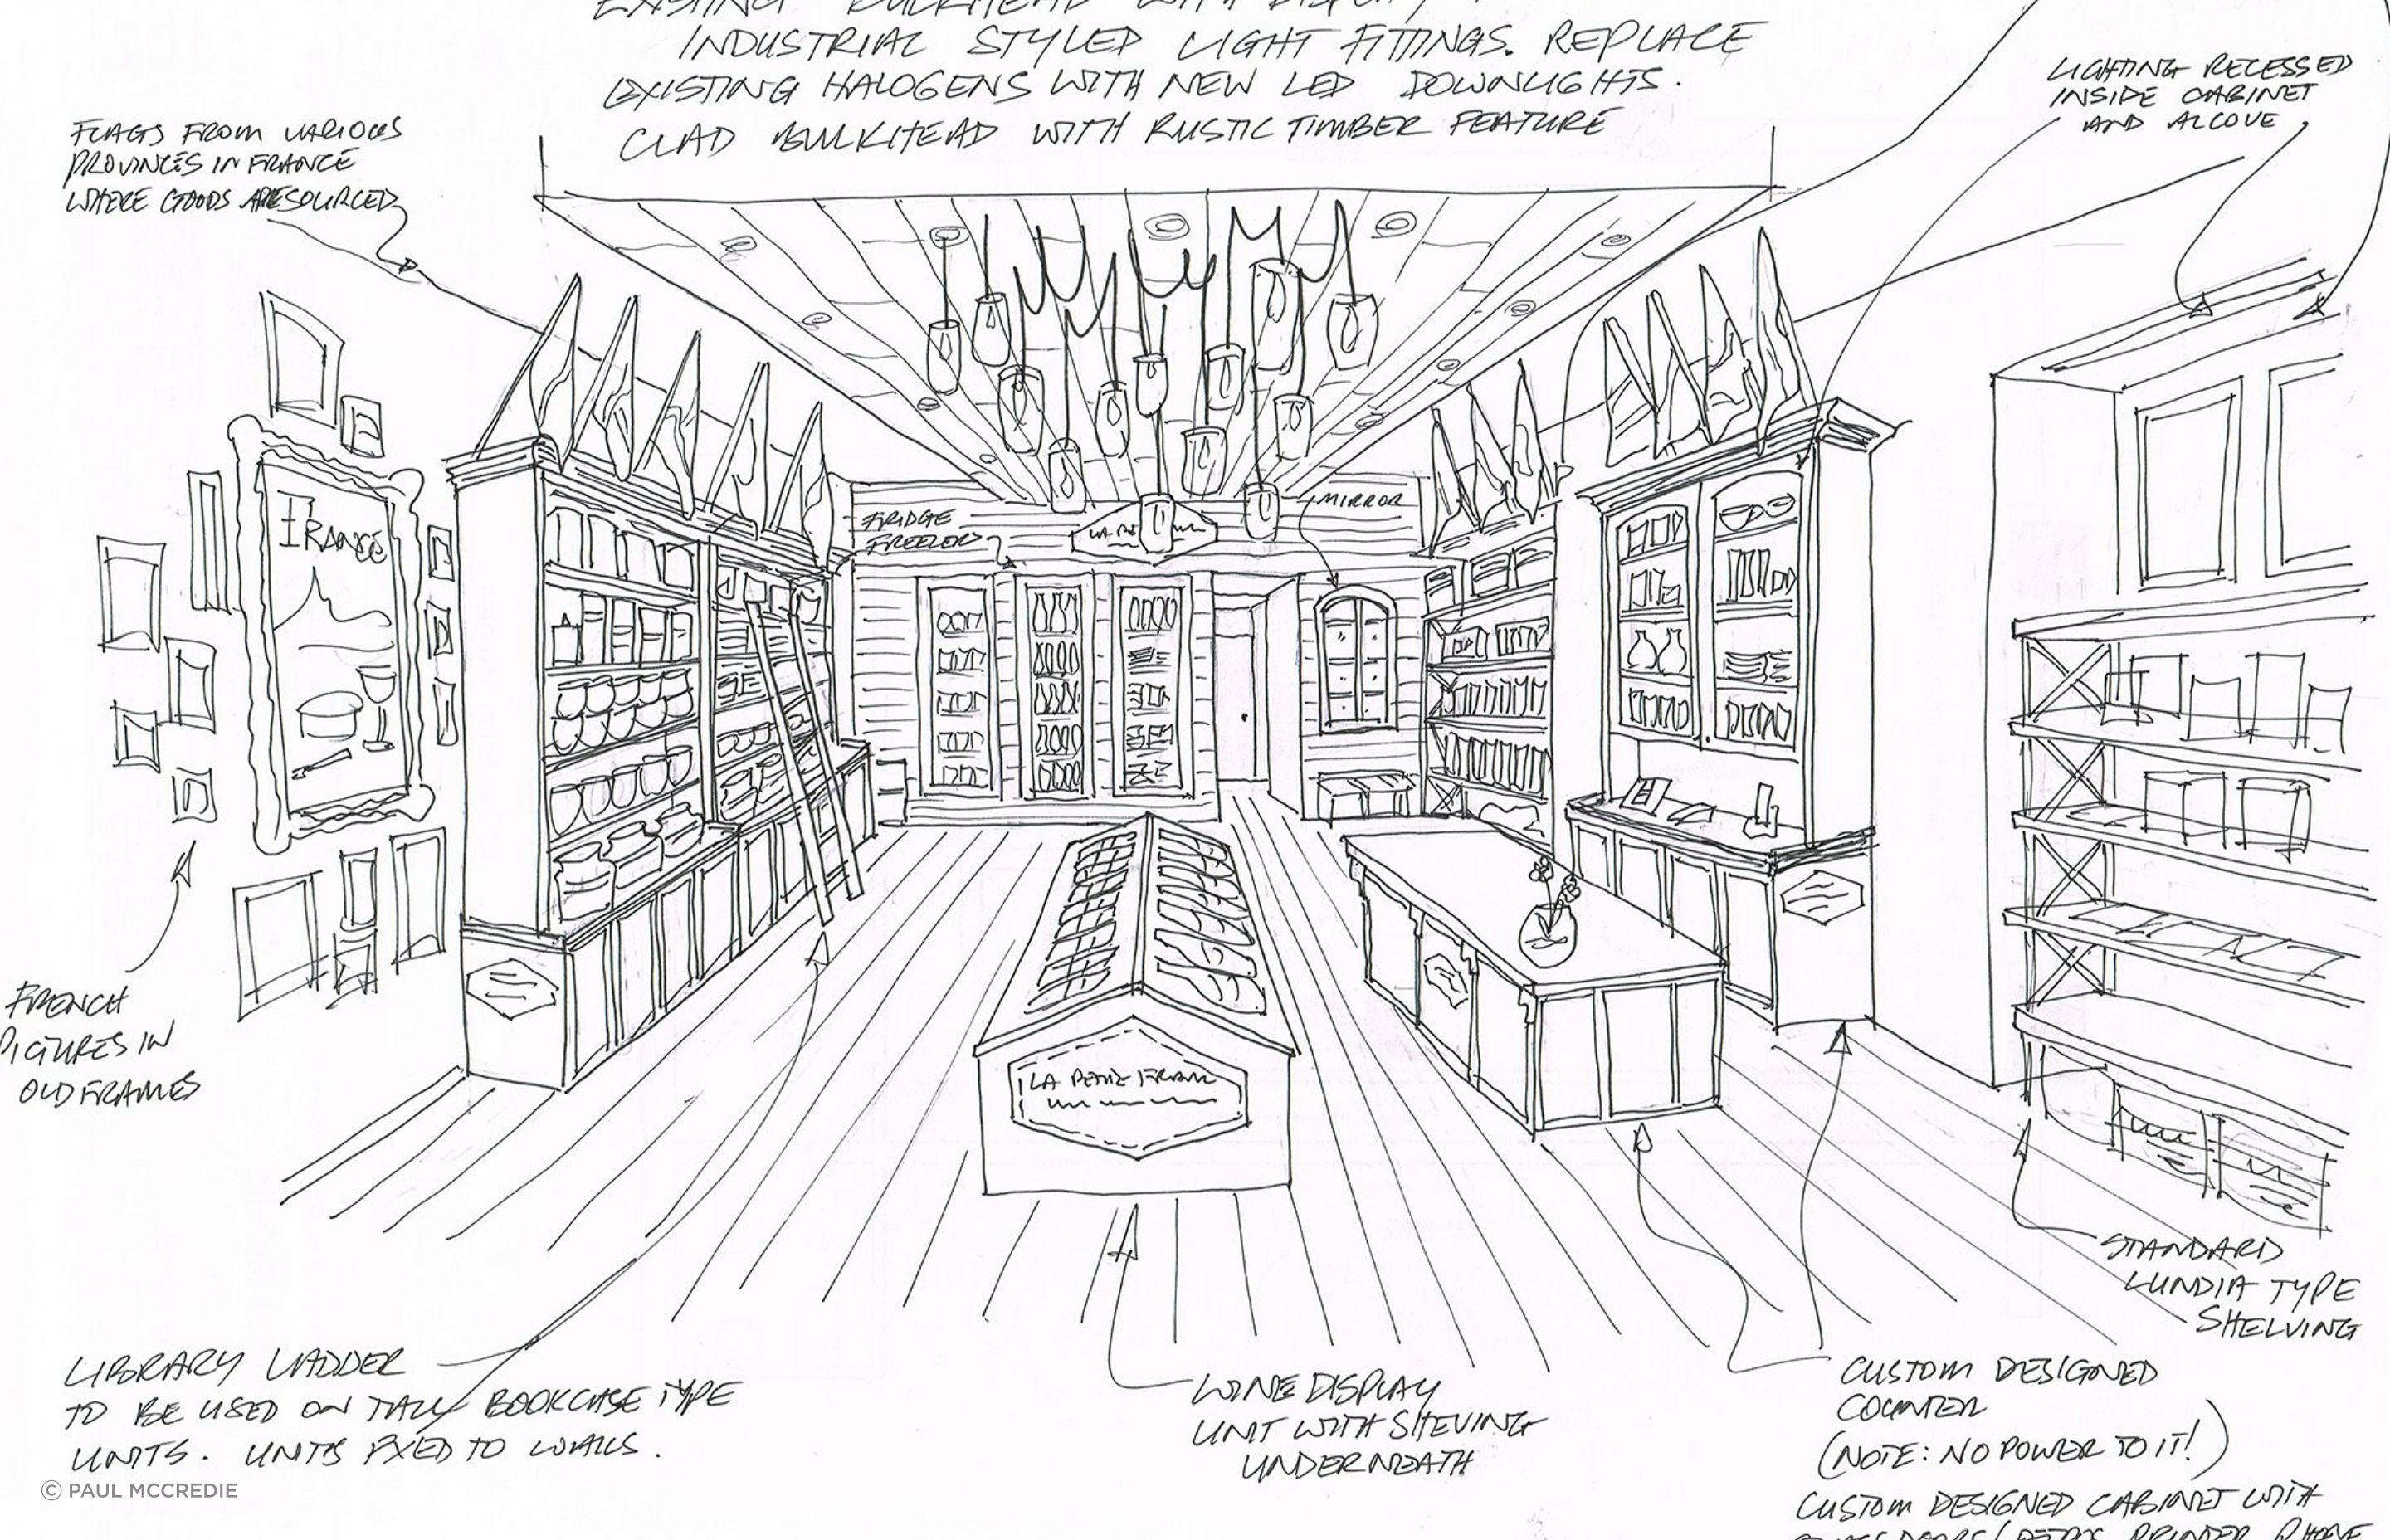 EXISTING BULKHEAD WITH DISPLAY
INDUSTRIAL STYLED LIGHT FITTINGS. REPLACE
EXISTING HALOGENS WITH NEW LED DOWNLIGHTS.
CLAD BULKHEAD WITH RUSTIC TIMBER FEATURE
LIGHTING RECESSED
INSIDE CABINET
AND ALCOVE
FLAGS FROM VARIOUS
PROVINCES IN FRANCE
WHERE GOODS ARE SOURCED
MIRROR
FRIDGE
FREEZERS
LA
FRANCE
FRENCH
PICTURES IN
OLD FRAMES
LA PETITE FRANC
STANDARD
LUNDIA TYPE
SHELVING
LIBRARY LADDER
TO BE USED ON TALL BOOKCASE TYPE
UNITS. UNITS FIXED TO WALLS.
WINE DISPLAY
UNIT WITH SHEVING
UNDERNEATH
CUSTOM DESIGNED
COUNTER
(NOTE: NO POWER TO IT!)
CUSTOM DESIGNED CABINET WITH
PRINTER, PHONE
© PAUL MCCREDIE